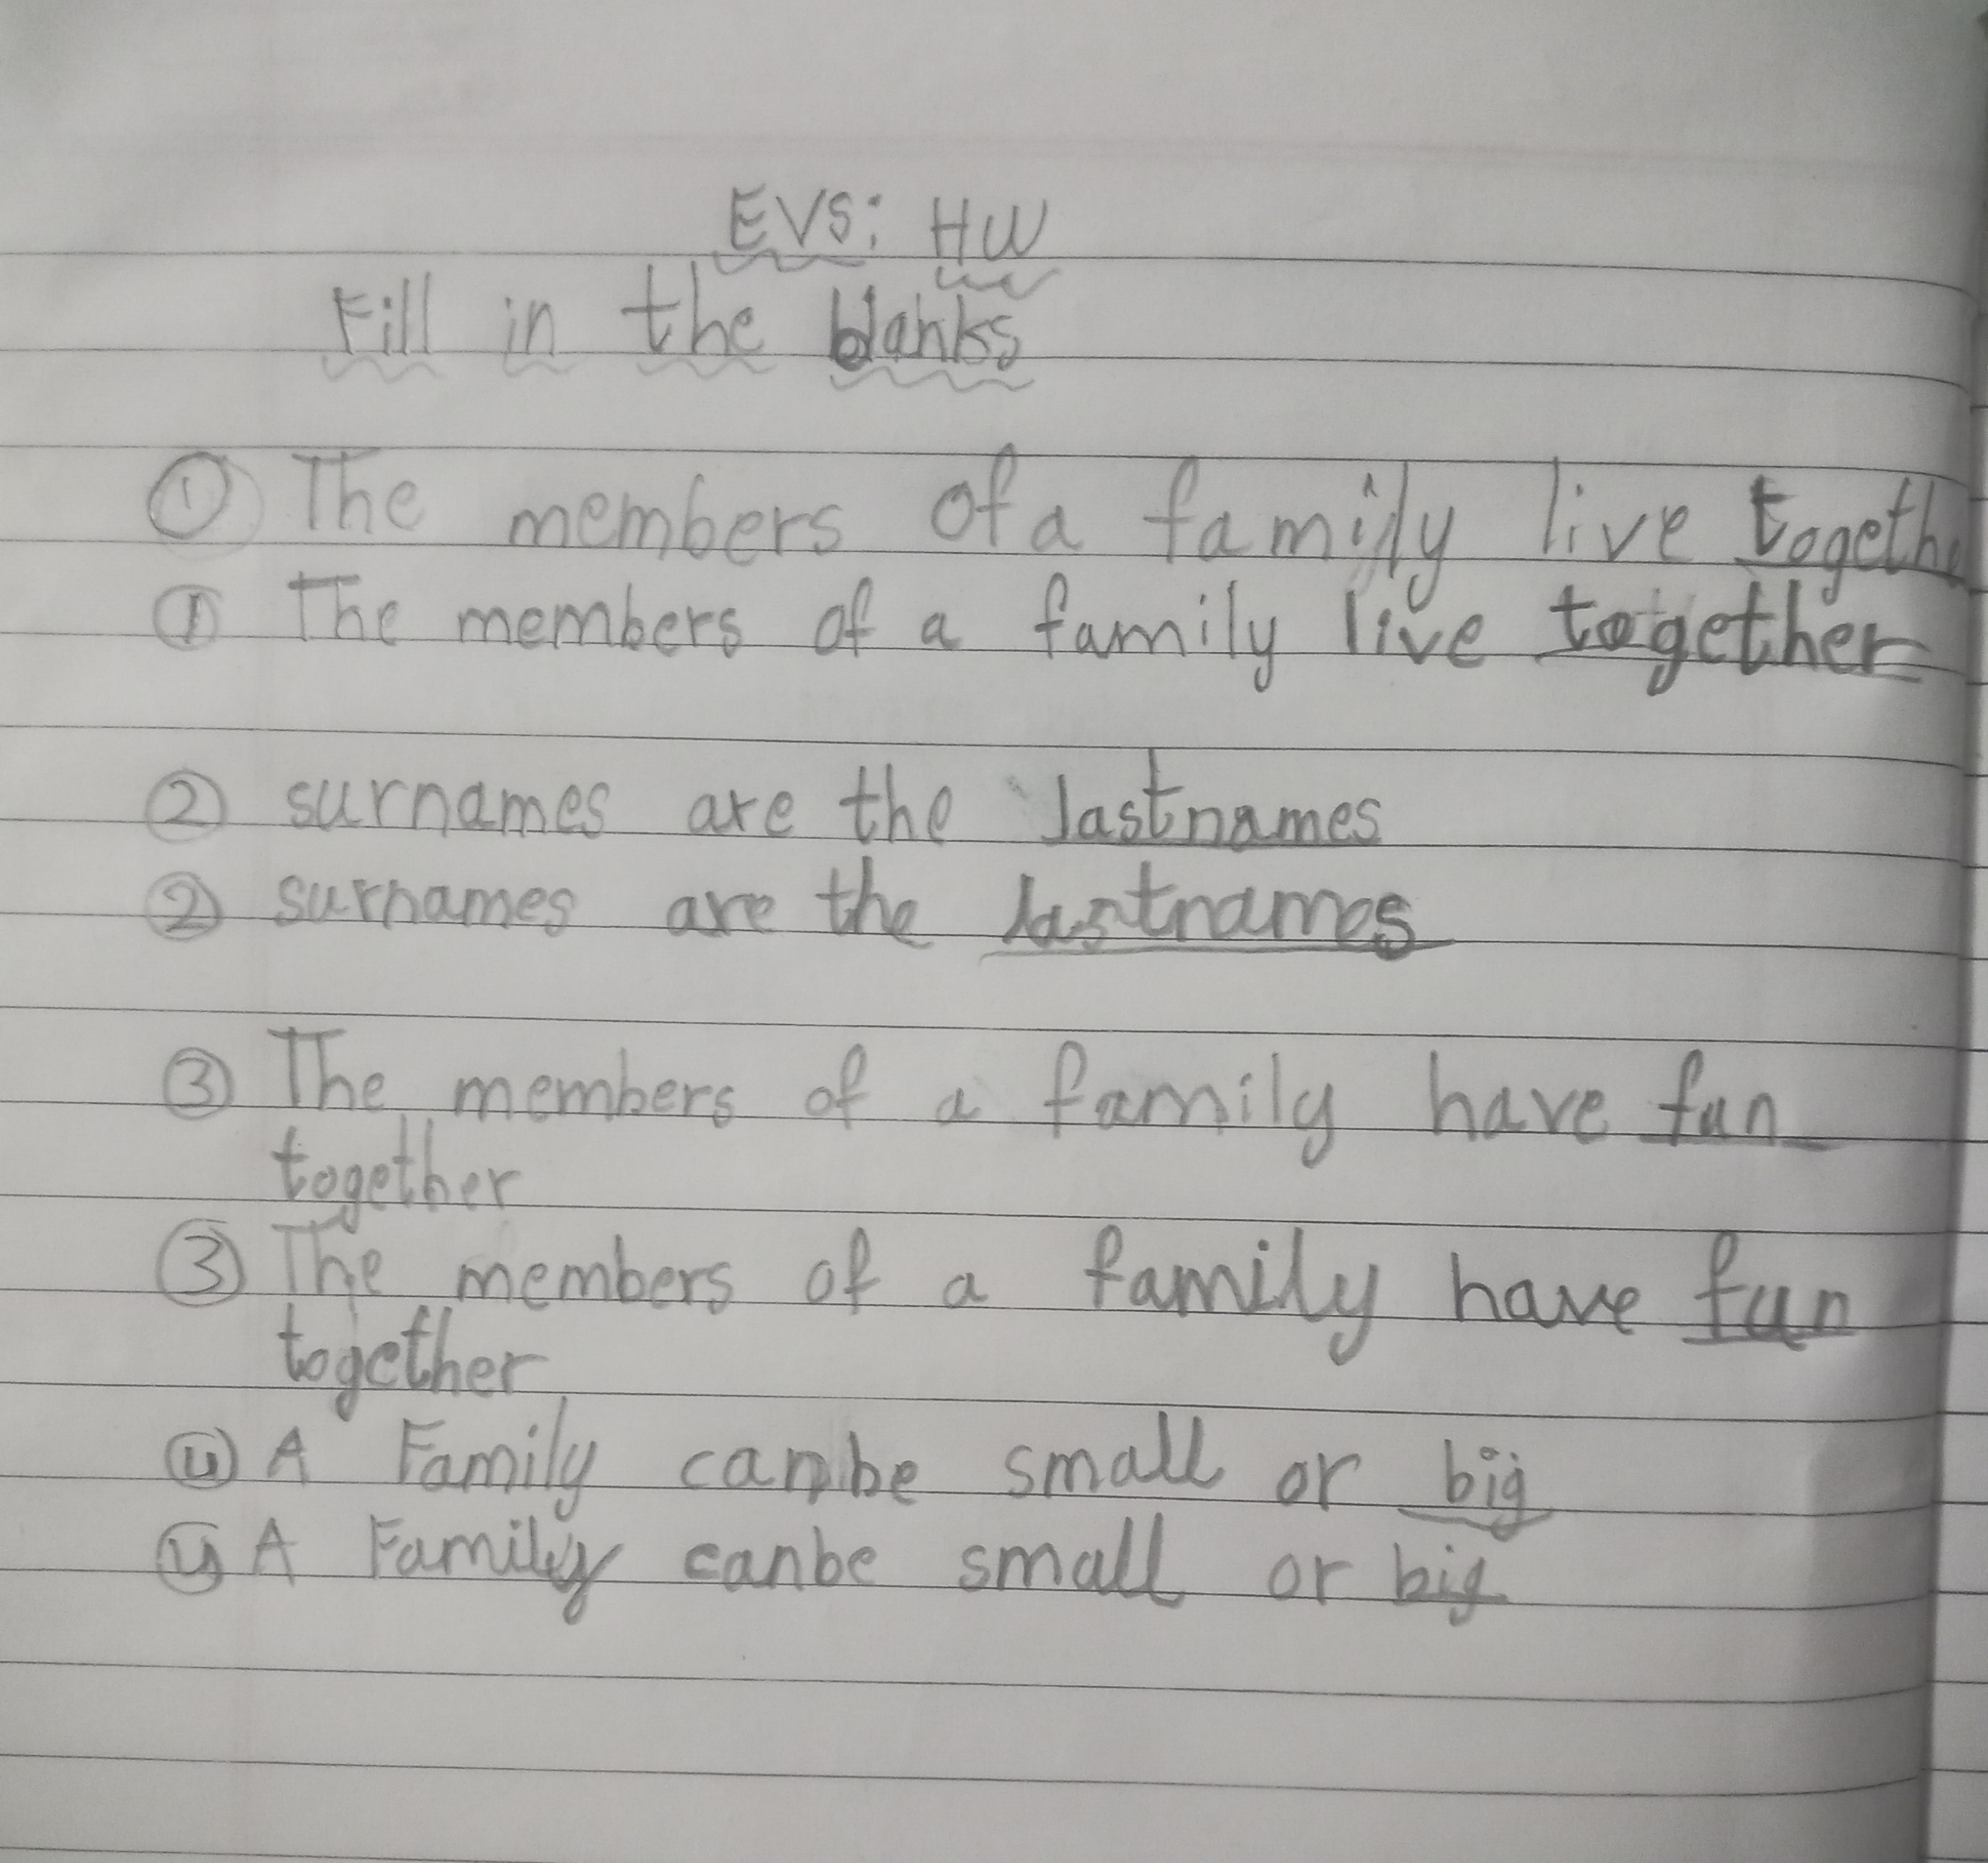 EVS: HW
Fill in the blanks
① The members of a family live togeth
① The members of a family live together
② surnames are the lastnames
② surnames are the lastnames
③ The members of a family have fun
together
③ The members of a family have fun
together
④ A Family canbe small or big
④ A Family canbe small or big